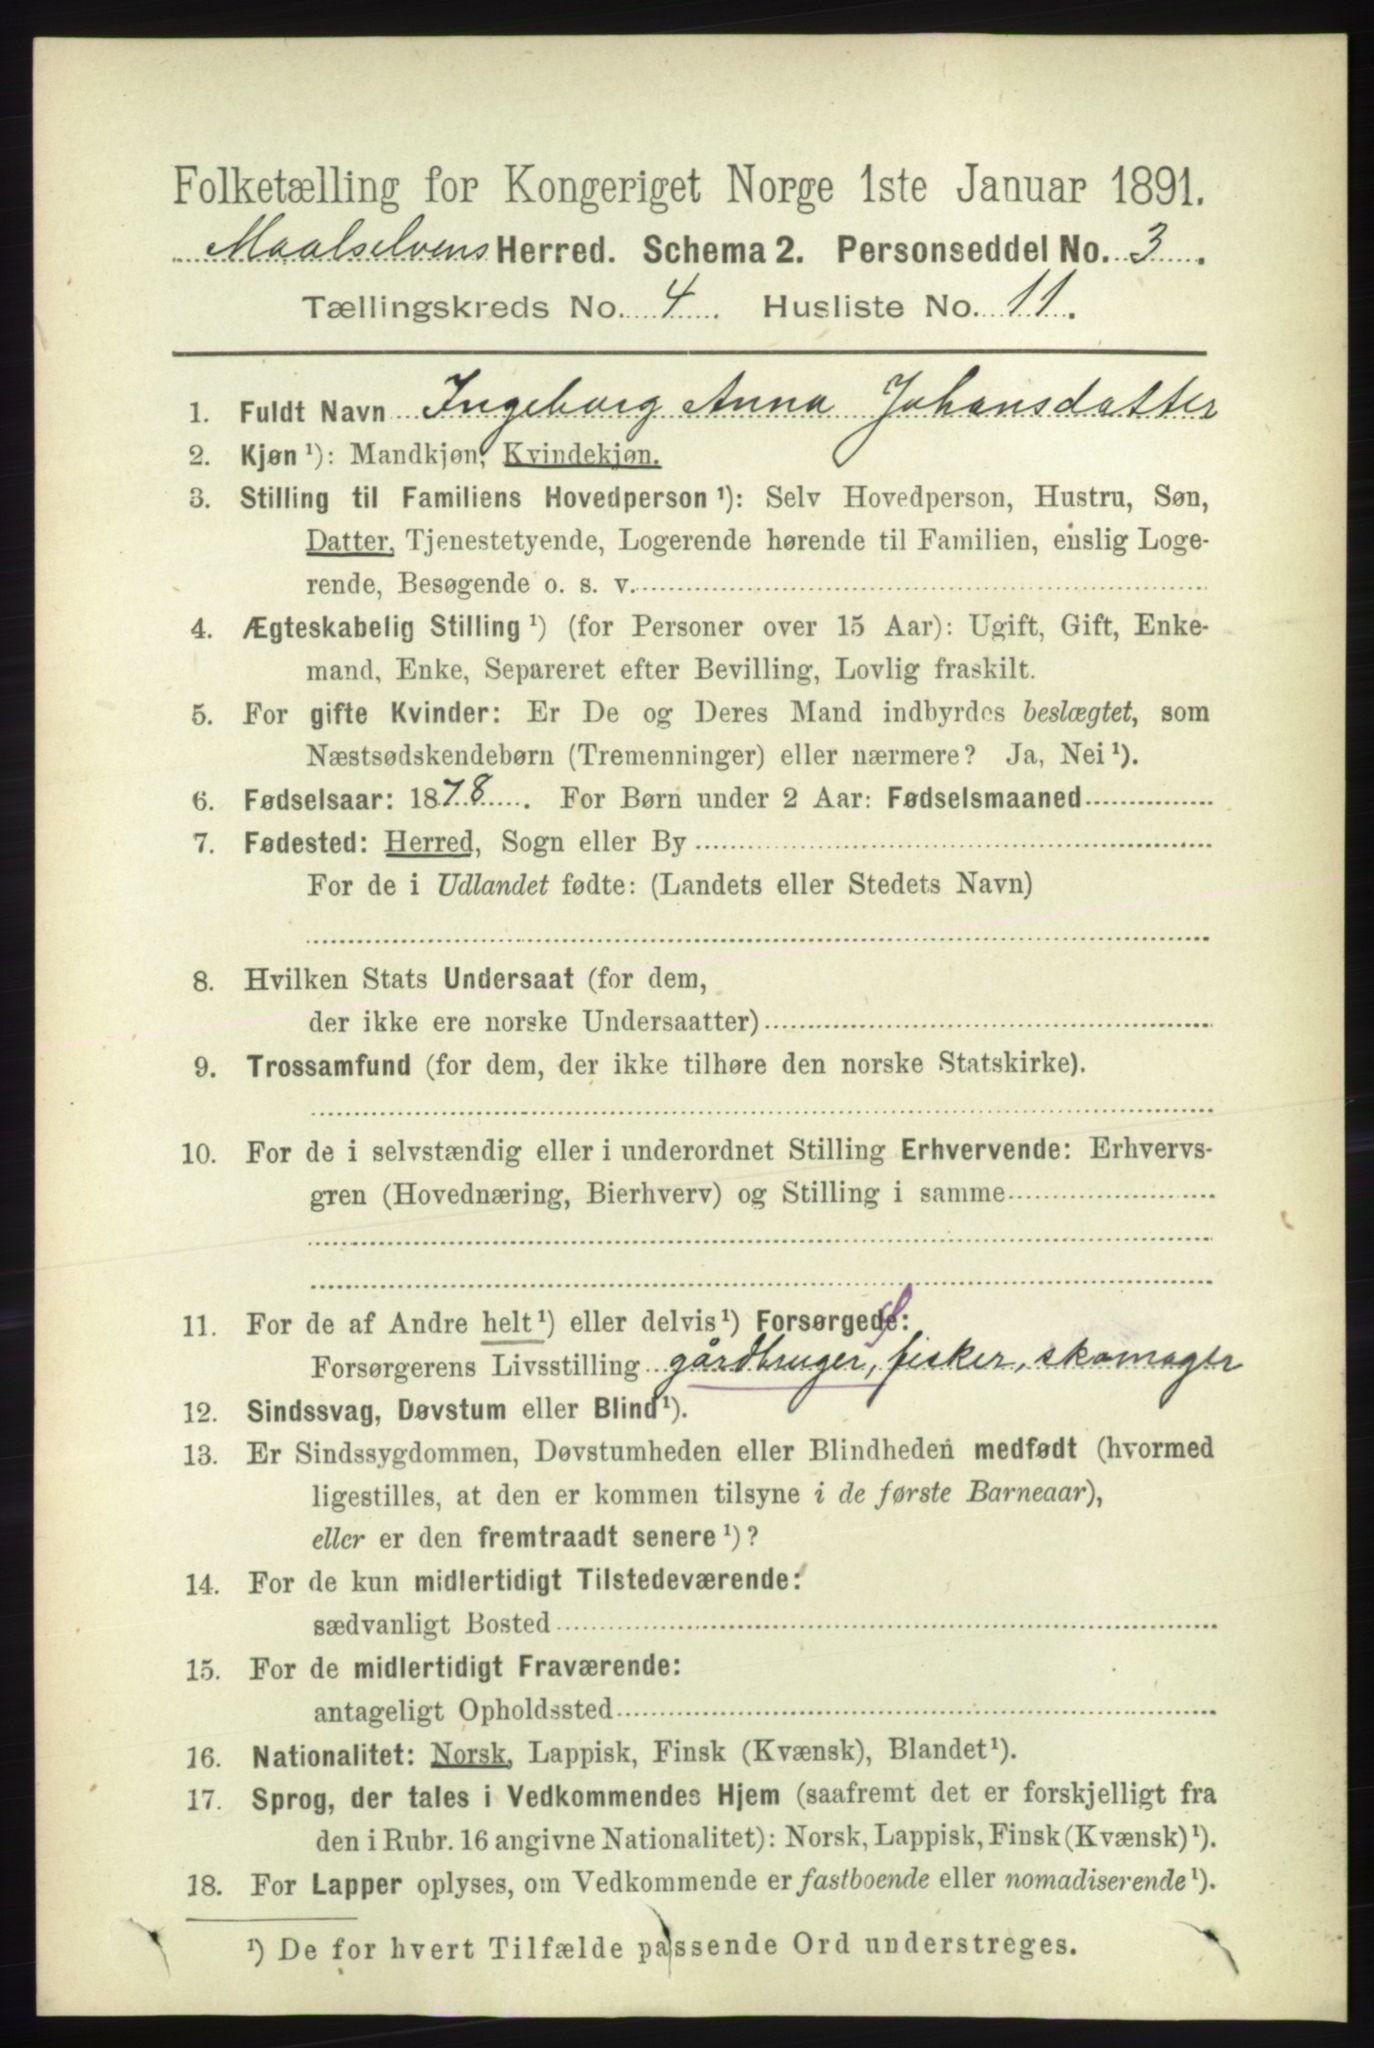 Folketælling for Kongeriget Norge 1ste Januar 1891.
Maalselvens Herred. Schema 2. Personseddel No. 3.
Tællingskreds No. 4. Husliste No. 11.
1. Fuldt Navn Ingeborg Anna Johansdatter
2. Kjøn ¹): Mandkjøn, Kvindekjøn.
3. Stilling til Familiens Hovedperson ¹): Selv Hovedperson, Hustru, Søn,
Datter, Tjenestetyende, Logerende hørende til Familien, enslig Loge-
rende, Besøgende o. s. v.
4. Ægteskabelig Stilling ¹) (for Personer over 15 Aar): Ugift, Gift, Enke-
mand, Enke, Separeret efter Bevilling, Lovlig fraskilt.
5. For gifte Kvinder: Er De og Deres Mand indbyrdes beslægtet, som
Næstsødskendebørn (Tremenninger) eller nærmere? Ja, Nei ¹).
6. Fødselsaar: 1878. For Børn under 2 Aar: Fødselsmaaned
7. Fødested: Herred, Sogn eller By
For de i Udlandet fødte: (Landets eller Stedets Navn)
8. Hvilken Stats Undersaat (for dem,
der ikke ere norske Undersaatter)
9. Trossamfund (for dem, der ikke tilhøre den norske Statskirke).
10. For de i selvstændig eller i underordnet Stilling Erhvervende: Erhvervs-
gren (Hovednæring, Bierhverv) og Stilling i samme
11. For de af Andre helt ¹) eller delvis ¹) Forsørgede:
Forsørgerens Livsstilling gårdbruger, fisker, skomager
12. Sindssvag, Døvstum eller Blind ¹).
13. Er Sindssygdommen, Døvstumheden eller Blindheden medfødt (hvormed
ligestilles, at den er kommen tilsyne i de første Barneaar),
eller er den fremtraadt senere ¹)?
14. For de kun midlertidigt Tilstedeværende:
sædvanligt Bosted
15. For de midlertidigt Fraværende:
antageligt Opholdssted
16. Nationalitet: Norsk, Lappisk, Finsk (Kvænsk), Blandet ¹).
17. Sprog, der tales i Vedkommendes Hjem (saafremt det er forskjelligt fra
den i Rubr. 16 angivne Nationalitet): Norsk, Lappisk, Finsk (Kvænsk) ¹).
18. For Lapper oplyses, om Vedkommende er fastboende eller nomadiserende ¹).
¹) De for hvert Tilfælde passende Ord understreges.